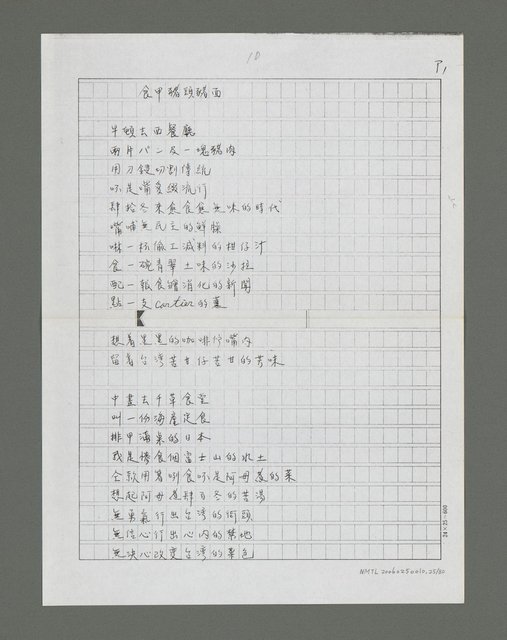 10
P1
食甲豬頭豬面
早頓去西餐廳
兩片パン及一塊豬肉
用刀鎈切割傳統
嘛是嘴食綴流行
肆拾冬來愈食愈無味的時代
嘴哺無民主的鮮臊
啉一杯偷工減料的柑仔汁
食一碗青翠土味的沙拉
配一報食膾消化的新聞
點一支cartier的薰
想着黑黑的咖啡佇嘴內
留着台灣苦甘仔苦甘的芳味
中晝去千草食堂
叫一份海產定食
排甲滿桌的日本
我是慘食個富士山的水土
仝款用箸咧食嘛是阿母煮的菜
想起阿母煮肆百冬的苦湯
無勇氣行出台灣的街頭
無信心行出心內的禁地
無決心改變台灣的菜色
24×25=600
NMTL20060250010.25/30